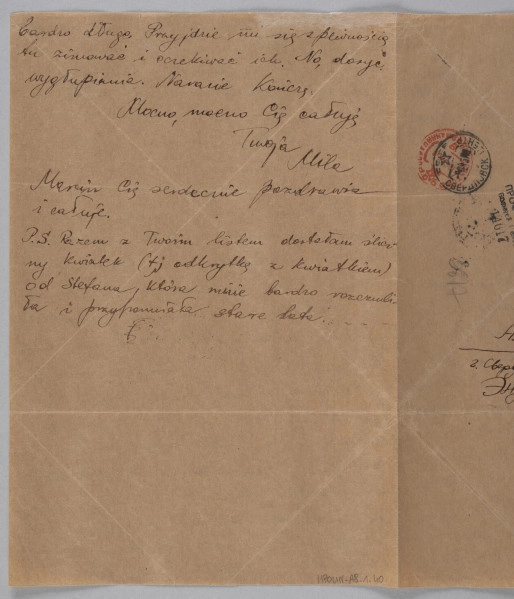 bardzo długo. Przyjdzie mi się z pewnością
tu zimować i oczekiwać ich. No, dosyć
wygłupiania. Narazie kończę.
Mocno, mocno Cię całuję
Twoja
Mila
Marcin Cię serdecznie pozdrawia
i całuje.
P.S. Razem z Twoim listem dostałam ślicz-
ny kwiatek (tj odkrytkę z kwiatkiem)
od Stefana, która mnie bardzo rozczuli-
ła i przypomniała stare lata.
ПРОС
г. Свер